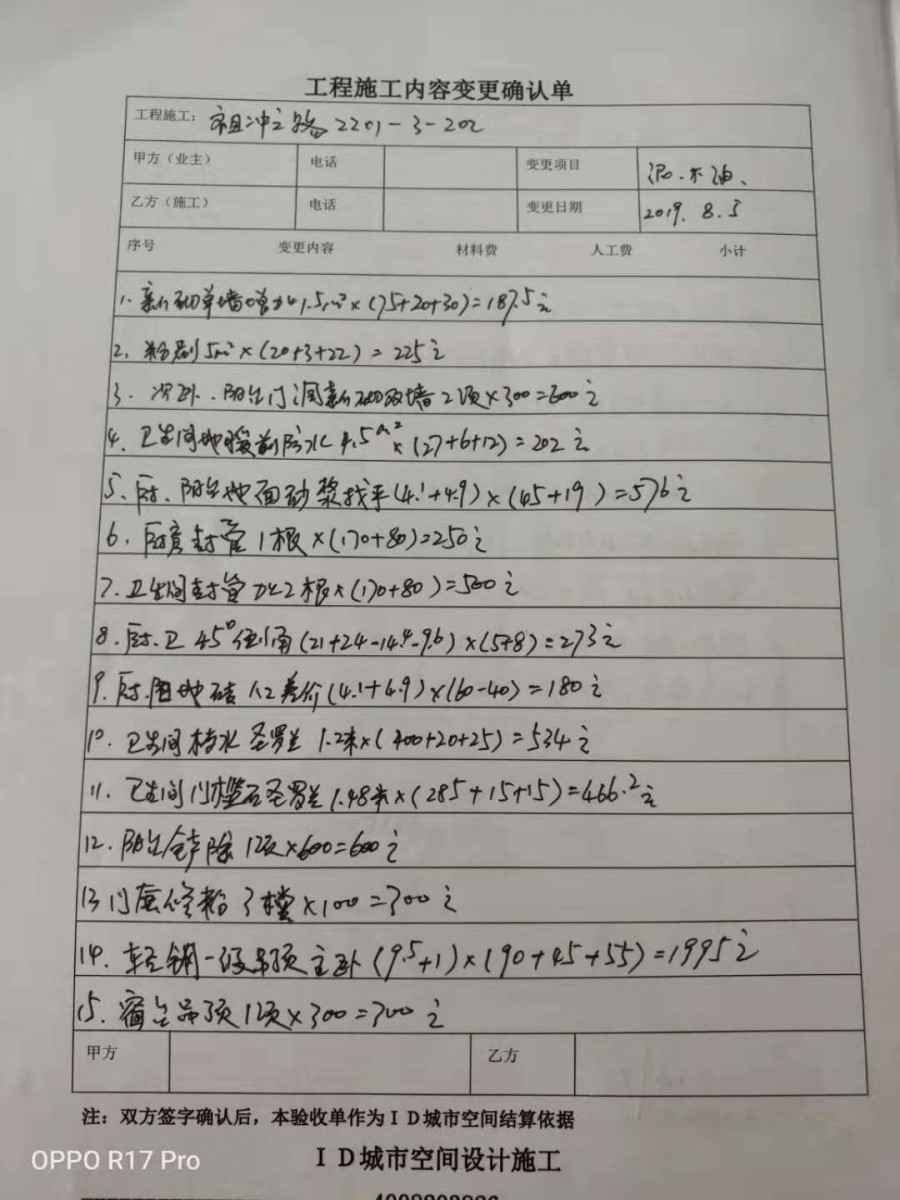 工程施工内容变更确认单
工程施工: 祖冲之路2201-3-202
甲方（业主） 电话 变更项目 泥.木油、
乙方（施工） 电话 变更日期 2019. 8.5
序号 变更内容 材料费 人工费 小计
1. 新砌单墙增加1.5m²×(75+20+30)=187.5元
2. 粉刷5m²×(20+3+22)=225元
3. 次卧.阳台门洞新砌双墙2项×300=600元
4. 卫生间地暖前防水 4.5m²×(27+6+12)=202元
5. 厨.阳台地面砂浆找平(4.1+4.9)×(45+19)=576元
6. 厨房封管1根×(170+80)=250元
7. 卫生间封管 2根×(170+80)=500元
8. 厨.卫45°倒角(21+24-14.4-9.6)×(5+8)=273元
9. 厨.阳地砖 差价(4.1+4.9)×(60-40)=180元
10. 卫生间档水 圣罗兰 1.2米×(400+20+25)=534元
11. 卫生间门槛石圣罗兰1.48米×(285+15+15)=466.2元
12. 阳台铲除1项×600=600元
13 门 修粉3樘×100=300元
14. 轻钢一级吊顶主卧(9.5+1)×(90+45+55)=1995元
15. 窗台吊顶1项×300=300元
甲方 乙方
注：双方签字确认后，本验收单作为ＩＤ城市空间结算依据
ＩＤ城市空间设计施工
OPPO R17 Pro